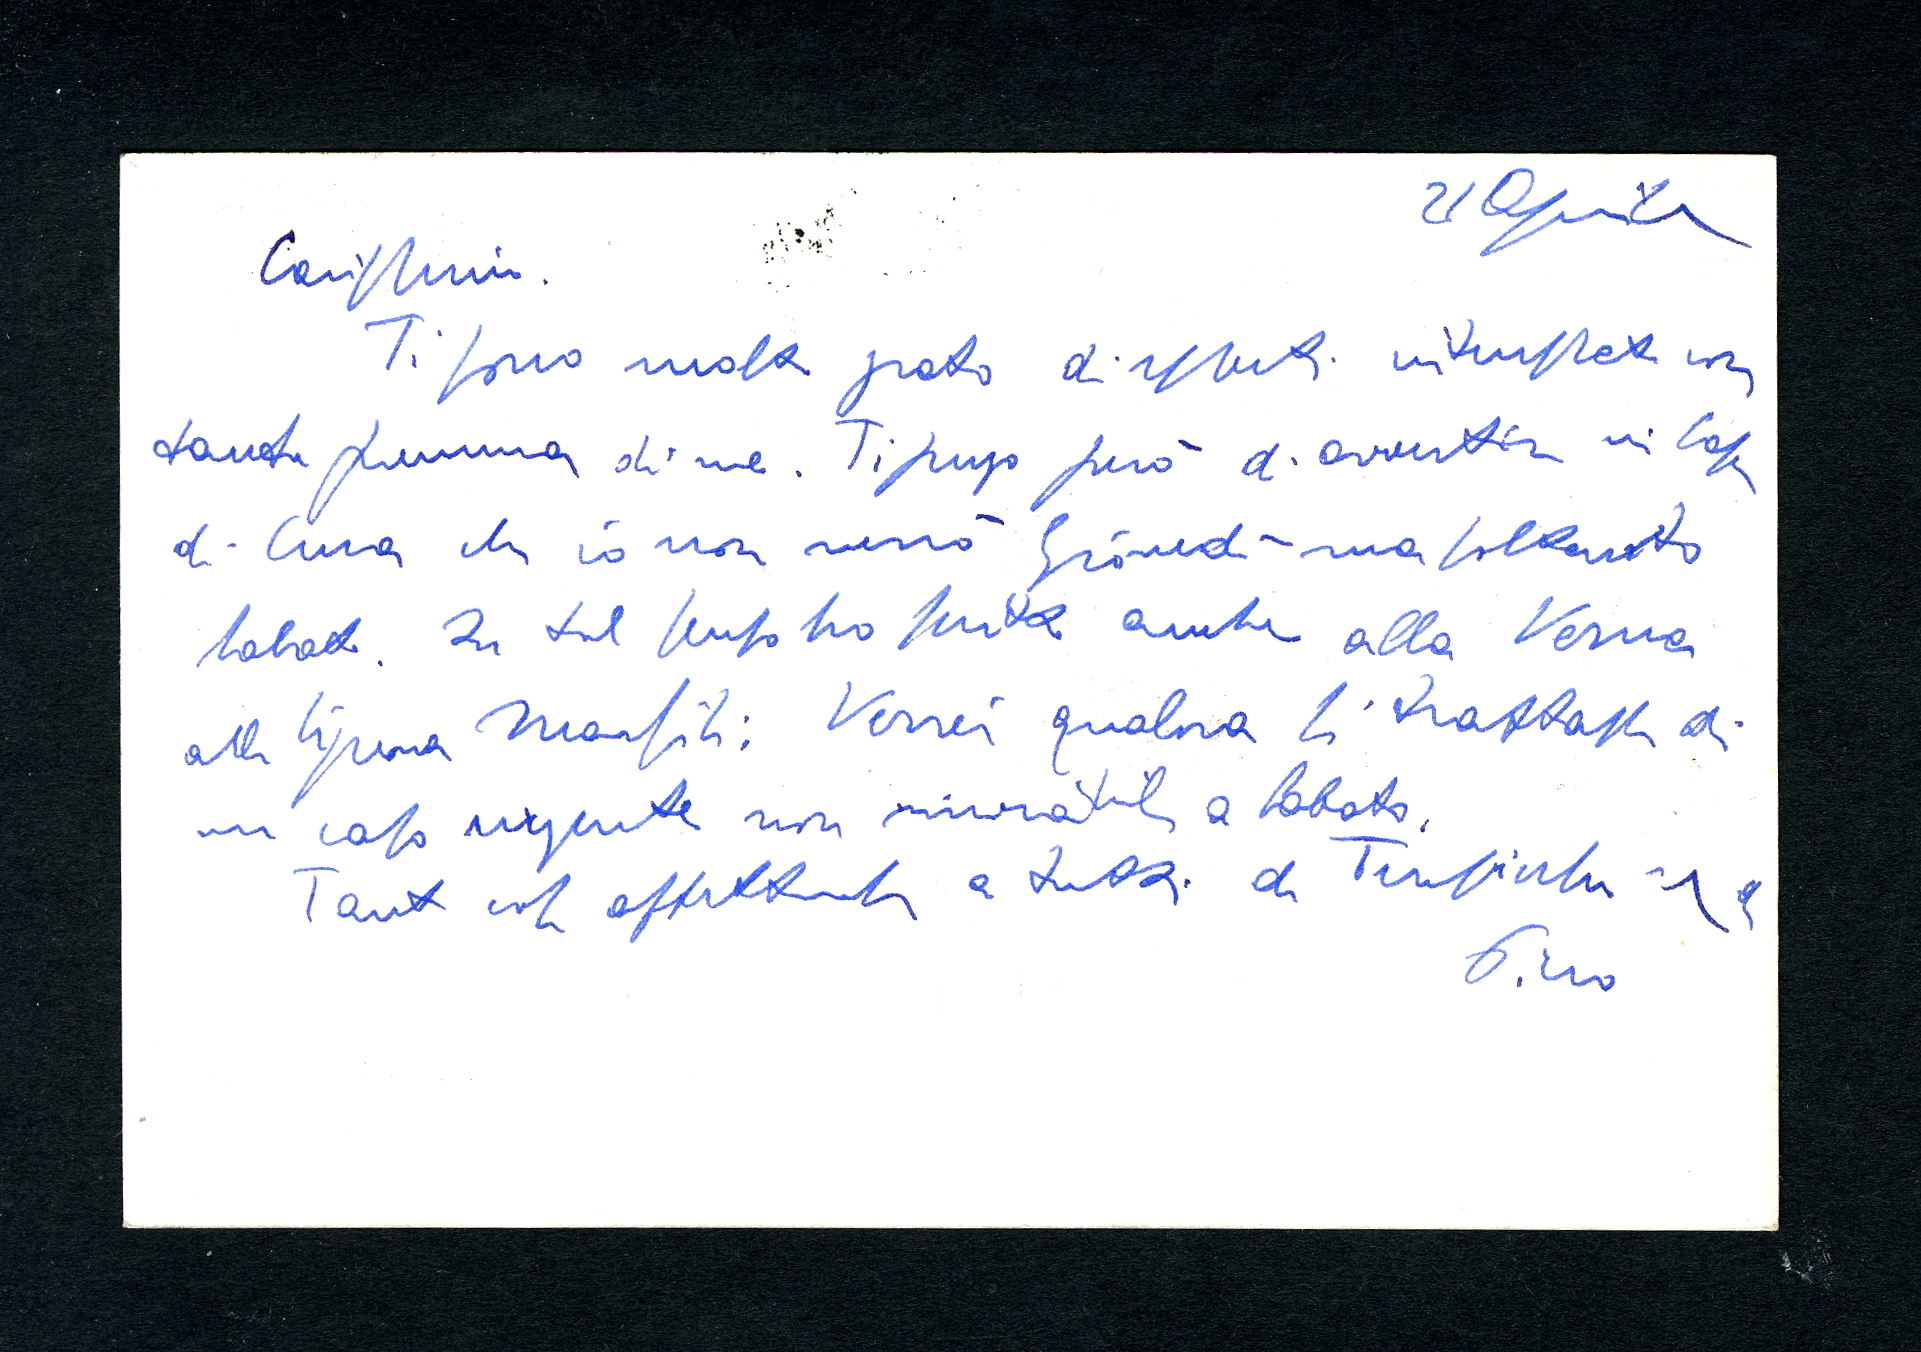 21 Aprile
Carissimo.
Ti sono molto grato di esserti interessato con
tanta premura di me. Ti prego però di avvertire in Casa
di Cura che io non verrò Giovedì - ma soltanto
Sabato. In tal senso ho scritto anche alla Verna
alla Signora Marsili; Verrei qualora si trattasse di
un caso urgente non rinviabile a Sabato.
Tante cose affettuose a tutti. da
Piero